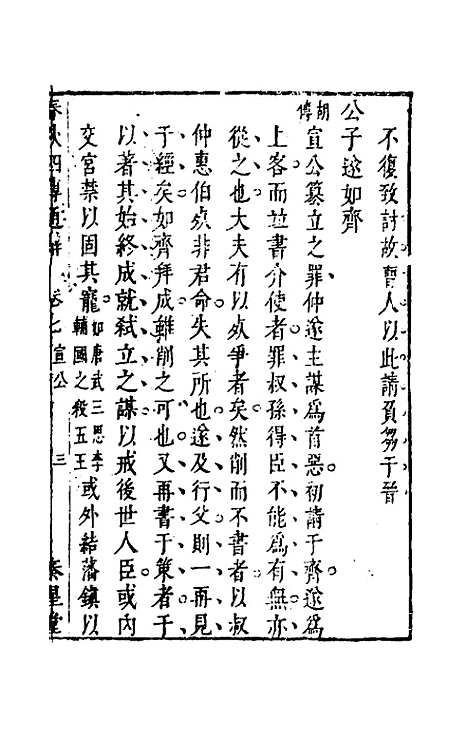 不復致討故曹人以此請負芻于晉
公子遂如齊
胡傳宣公簒立之罪仲遂主謀爲首惡初請于齊遂爲
上客而並書介使者罪叔孫得臣不能爲有無亦
從之也大夫有以死爭者矣然削而不書者以叔
仲惠伯死非君命失其所也遂及行父則一再見
于經矣如齊拜成雖削之可也又再書于策者于
以著其始終成就弒立之謀以戒後世人臣或內
交宮禁以固其寵如唐武三思李輔國之殺五王或外結藩鎮以
春秋四傳通辭 卷七宣公 三